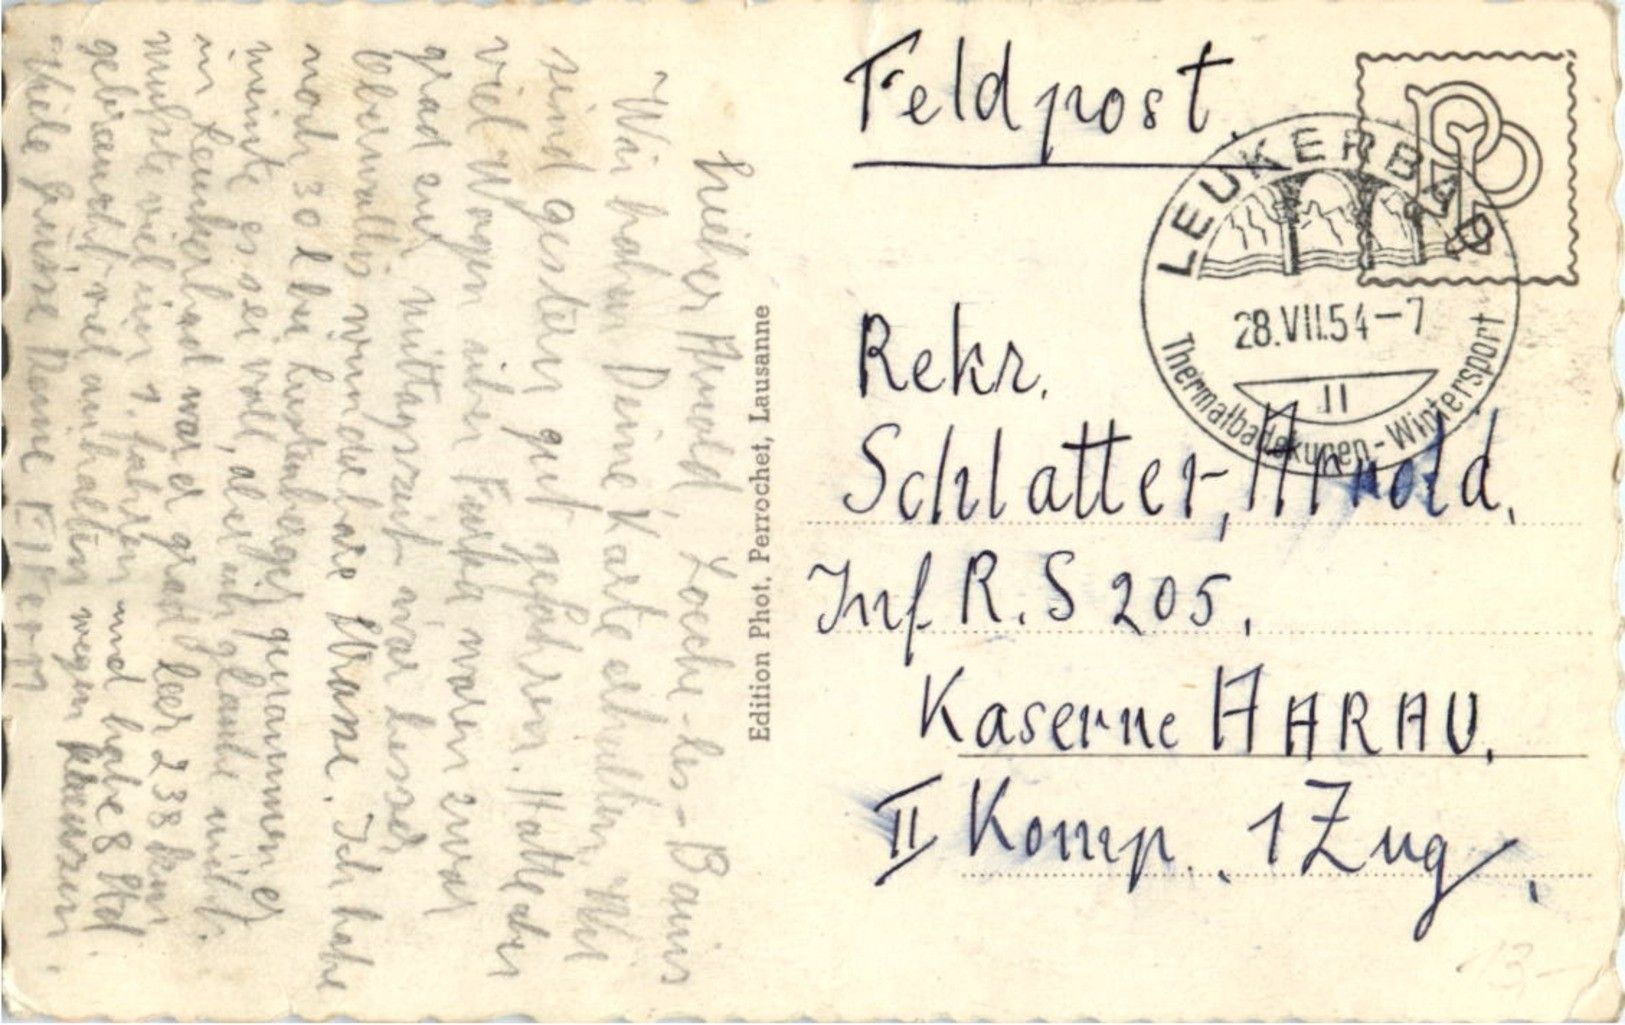 Lieber Arnold, Loeche-les-Bains
Wir haben Deine Karte erhalten. Wir
sind gestern gut gefahren. Hatte aber
viel Wagen über Furka waren zwar
grad zur mittagszeit war besser
Oberwallis wunderbare Strasse. Ich habe
noch 30 l bei genommen er
meinte es sei voll, aber ich glaube nicht.
in Leukerbad war er grad leer 238 km
musste viel im 1. fahren und habe 8 Std.
gebraucht viel anhalten wegen kreuzen.
Viele Grüsse Deine Eltern
Edition Phot. Perrochet, Lausanne
Feldpost.
PP
LEUKERBAD
28.VII.54-7
Thermalbadekuren - Wintersport
Rekr.
Schlatter, Arnold,
Inf. R. S 205,
Kaserne AARAU.
II Komp. 1 Zug,
13-